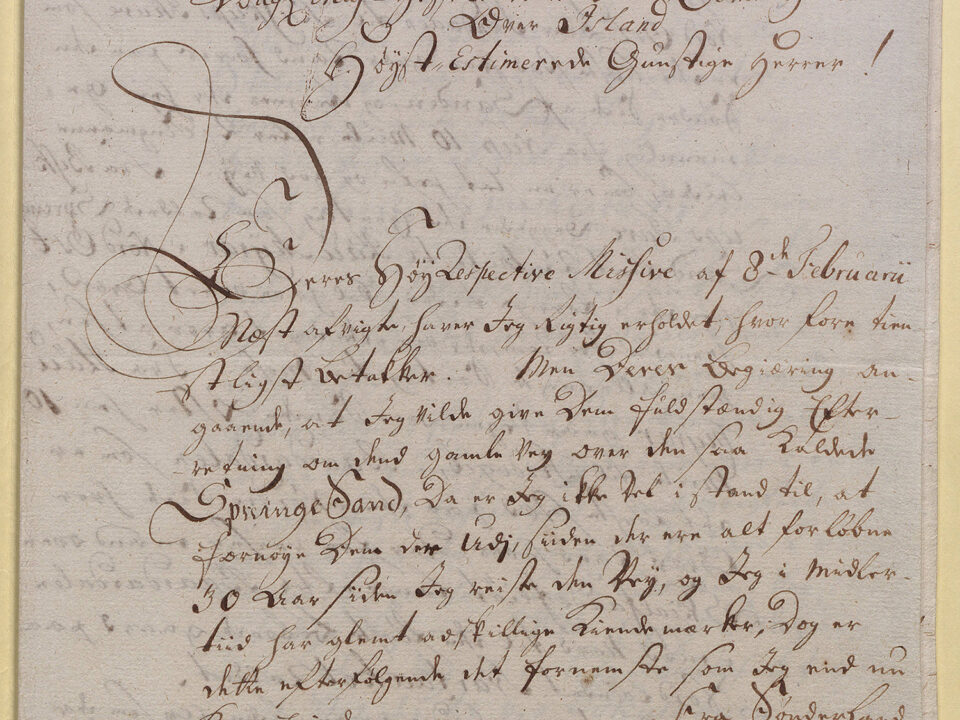 Over Island
Høyst-Estimerede Gunstige Herrer!
Deres Høy Respective Missive af 8de Februarii
Næst afvigte, haver Jeg Rigtig erholdet, hvor fore tien-
stligst betakker. Men Deres Begiæring an-
gaaende, at Jeg vilde give Dem fuldstændig Efter-
retning om dend gamle Vey over den saa kaldede
SpringeSand, da er Jeg ikke vel i stand til, at
fornøye Dem der udj, siiden der ere alt forløbne
30 Aar siiden Jeg reiste den Vey, og Jeg i midler-
tiid har glemt adskillige Kiendemærker, Dog er
dette efterfølgende det fornemste som Jeg end nu
fra Sønderland